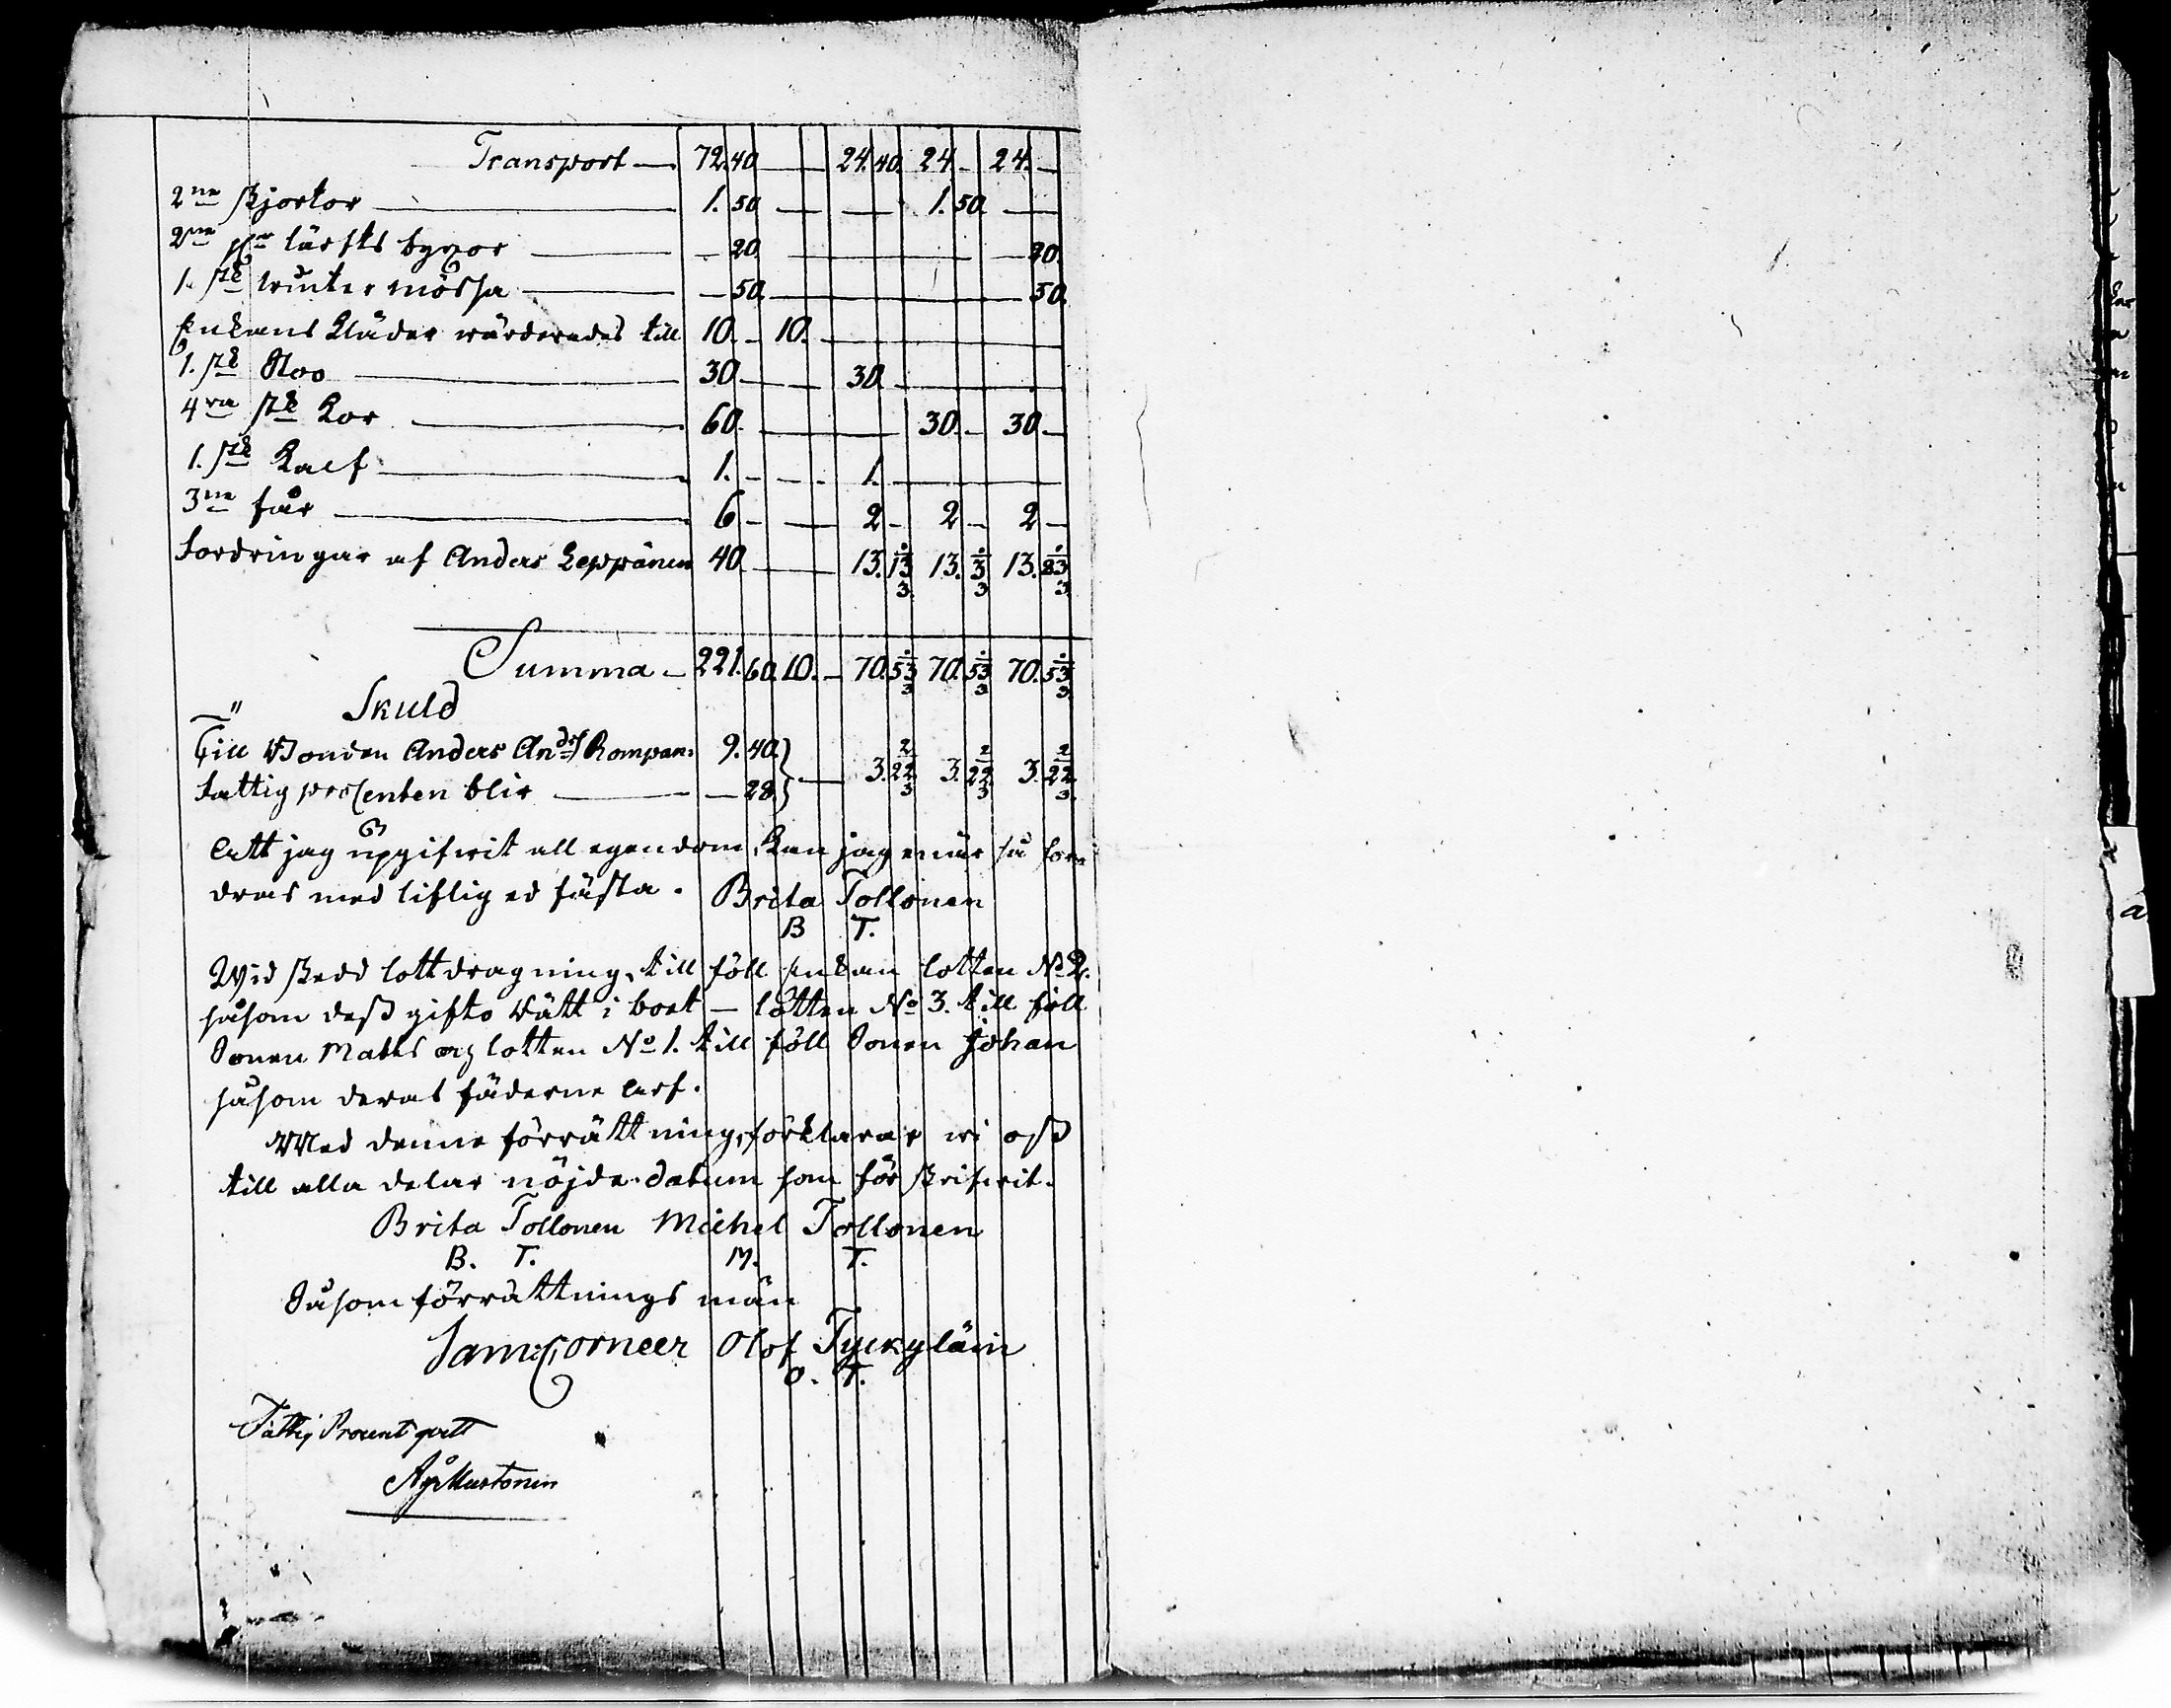 Transport — 72. 40 — 24. 40. 24 - 24. —
2ne skjortor — 1. 50 — — 1. 50. —
2ne par lärfts byxor — — 20. — 20.
1. stk winter mössa — — 50. — 50.
Enkans kläder wärderades till 10. - 10. —
1. stk Stoo — 30. — 30. —
4ra stk kor — 60. — 30. - 30. —
1. stk kalf — 1. - — 1. —
3ne får — 6 - — 2 - 2 - 2 —
Fordringar af Anders Leppänen 40. — 13. 13 1/3 13. 3 1/3 13. 23 1/3
Summa - 221. 60. 10. — 70. 53 1/3 70. 53 1/3 70. 53 1/3
Skuld
Till Bonden Anders Andrs Rompan: 9. 40. } — 3. 22 2/3 3. 22 2/3 3. 22 2/3
Fattig procenten blir — — 28 }
Att jag upgifwit all egendom, kan jag enär så for
dras med liflig ed fästa. Brita Tollonen
B T.
Wid skedd lottdragning, till föll enkan lotten No 2.
såsom dess gifto rätt i boet — lotten No 3. till föll
Sonen Matts och lotten No 1. till föll Sonen Johan
såsom deras fäderne arf.
Med denne förrättning, förklarar wi oss
till alla delar nöjde. datum som för skrifwit.
Brita Tollonen Michel Tollonen
B. T. M. T.
Såsom förrättnings män
Sam: Corneer Olof Tyckyläin
O. T.
Fattig Procent gult
Mustonen